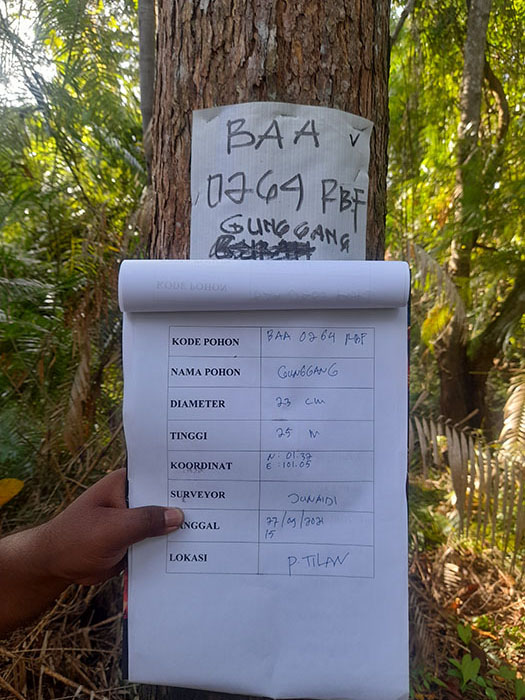 BAA ✓
0264 RBF
GUNGGANG
KODE POHON BAA 0264 RBF
NAMA POHON GUNGGANG
DIAMETER 23 cm
TINGGI 25 M
KOORDINAT N : 01.32
E : 101.05
SURVEYOR JUNAIDI
ANGGAL 27/09/2021
15
LOKASI P.TILAN